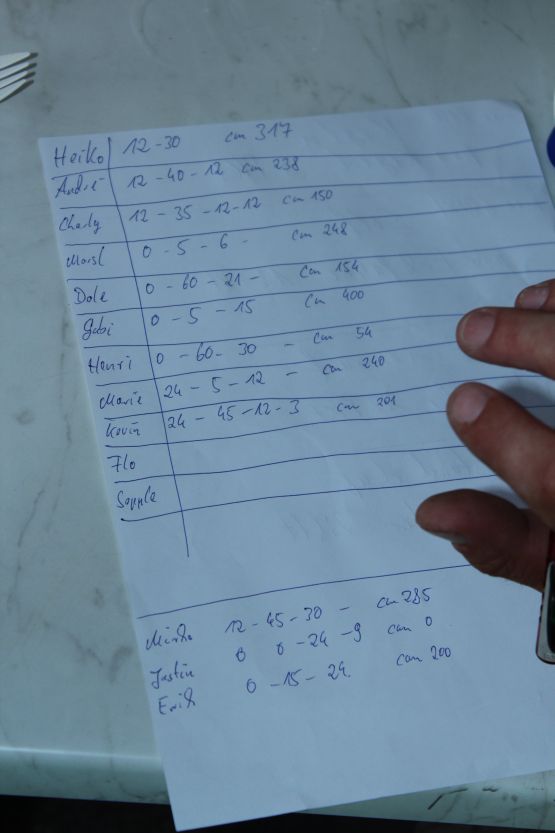 Heiko 12 - 30 cm 317
André 12 - 40 - 12 cm 238
Charly 12 - 35 - 12 - 12 cm 150
0 - 5 - 6 - cm 248
Dole 0 - 60 - 21 - cm 154
Gabi 0 - 5 - 15 cm 400
Henri 0 - 60 - 30 - cm 54
Marie 24 - 5 - 12 - cm 240
Kevin 24 - 45 - 12 - 3 cm 201
Flo
Sepple
Mirko 12 - 45 - 30 - cm 285
Justin 0 0 - 24 - 9 cm 0
Erik 0 - 15 - 24. cm 200